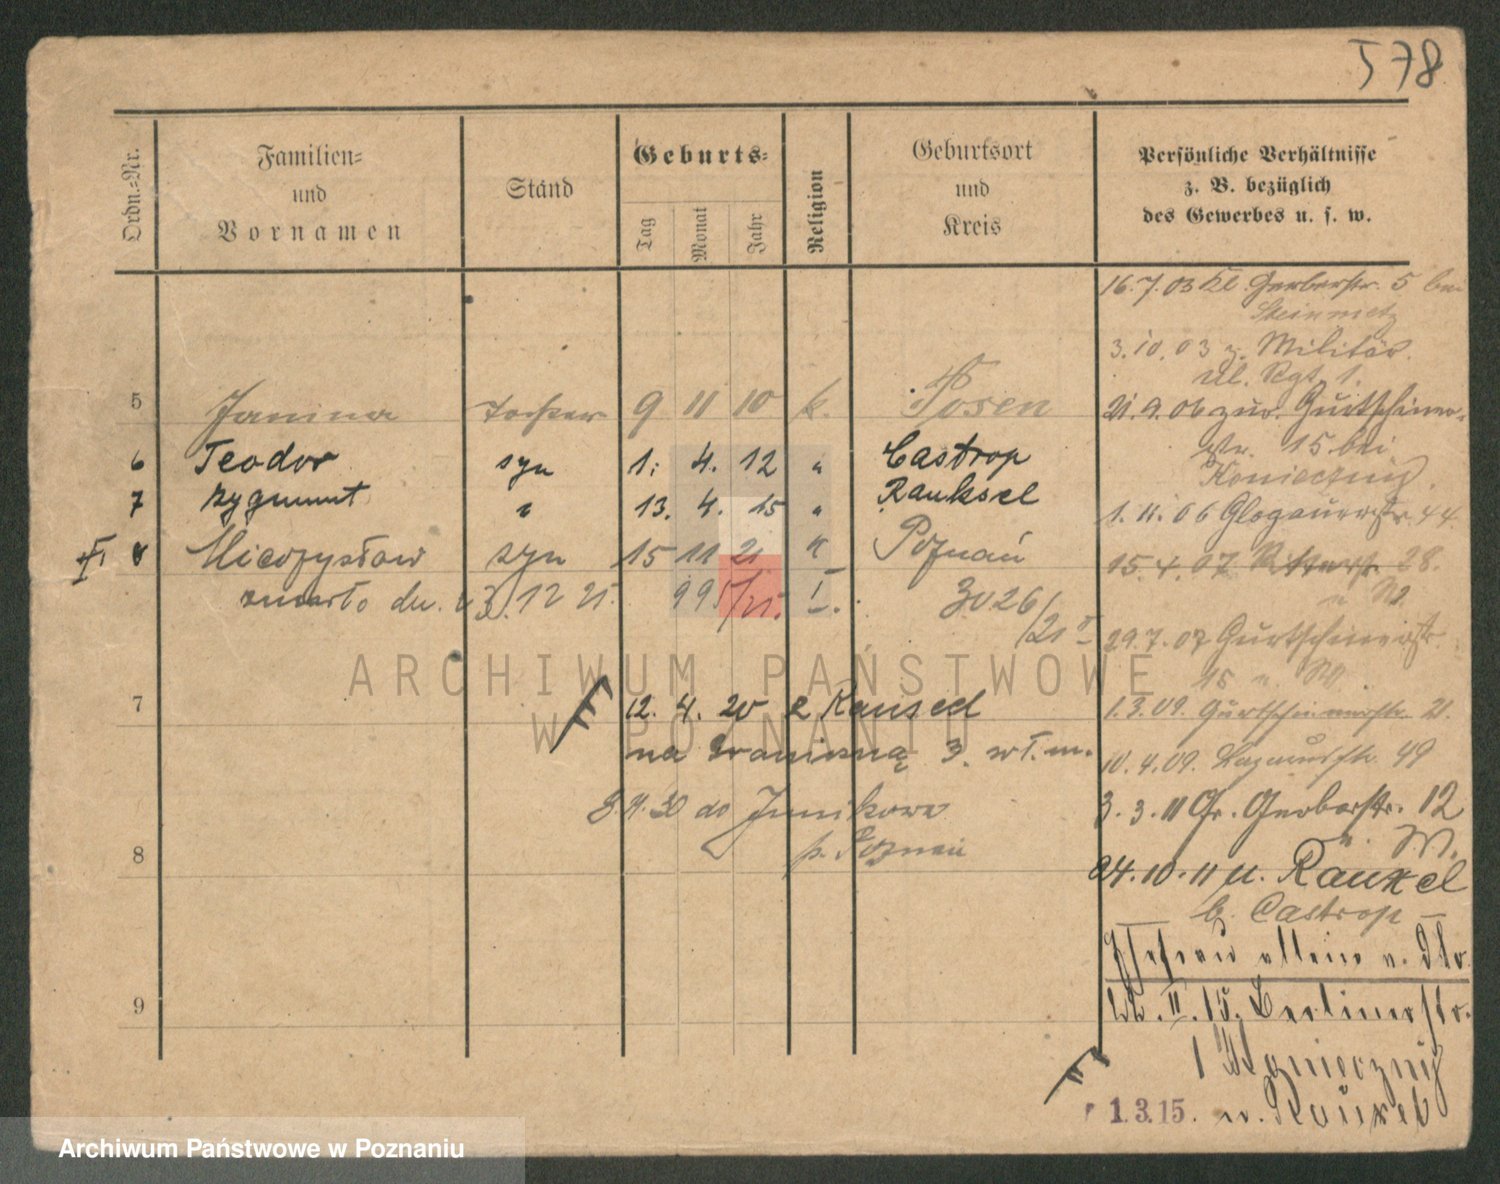 578
Ordn.=Nr.
Familien=
und
Vornamen
Stand
Geburts=
Tag
Monat
Jahr
Religion
Geburtsort
und
Kreis
Persönliche Verhältnisse
z. B. bezüglich
des Gewerbes u. s. w.
16.7.03 Kl. Gerberstr. 5 bei
Steinmetz
3.10.03 z. Militär
Ul. Rgt. 1.
5 Janina 9 11 10 k. Posen
21.9.06 zur. Gurtschiner-
str. 15 bei
6 Teodor syn 1. 4. 12 " Castrop
Konieczny.
7 Zygmunt " 13. 4. 15 " Rauksel
1.11.06 Glogauerstr. 44.
8 Mieczysław syn 15 11 21 " Poznań
15.4.07 Ritterstr. 28.
zmarło dn. 23.12 21. 995/21. I. 3026/21
29.7.07 Gurtschinerstr.
15
7 12. 4. 20 z Rauxel
1.3.09. Gurtschinerstr. 21.
na Graniczną 3. wł. m.
10.4.09. Lazarusstr. 49
do Junikowa
3.3.11 Gr. Gerberstr. 12
u. M.
8 p. Poznań
24.10.11 n. Rauxel
b. Castrop
Ehefrau allein
22.II.15. Berlinerstr.
9
Konieczny
1.3.15. n. Rauxel
ARCHIWUM PAŃSTWOWE
W POZNANIU
Archiwum Państwowe w Poznaniu